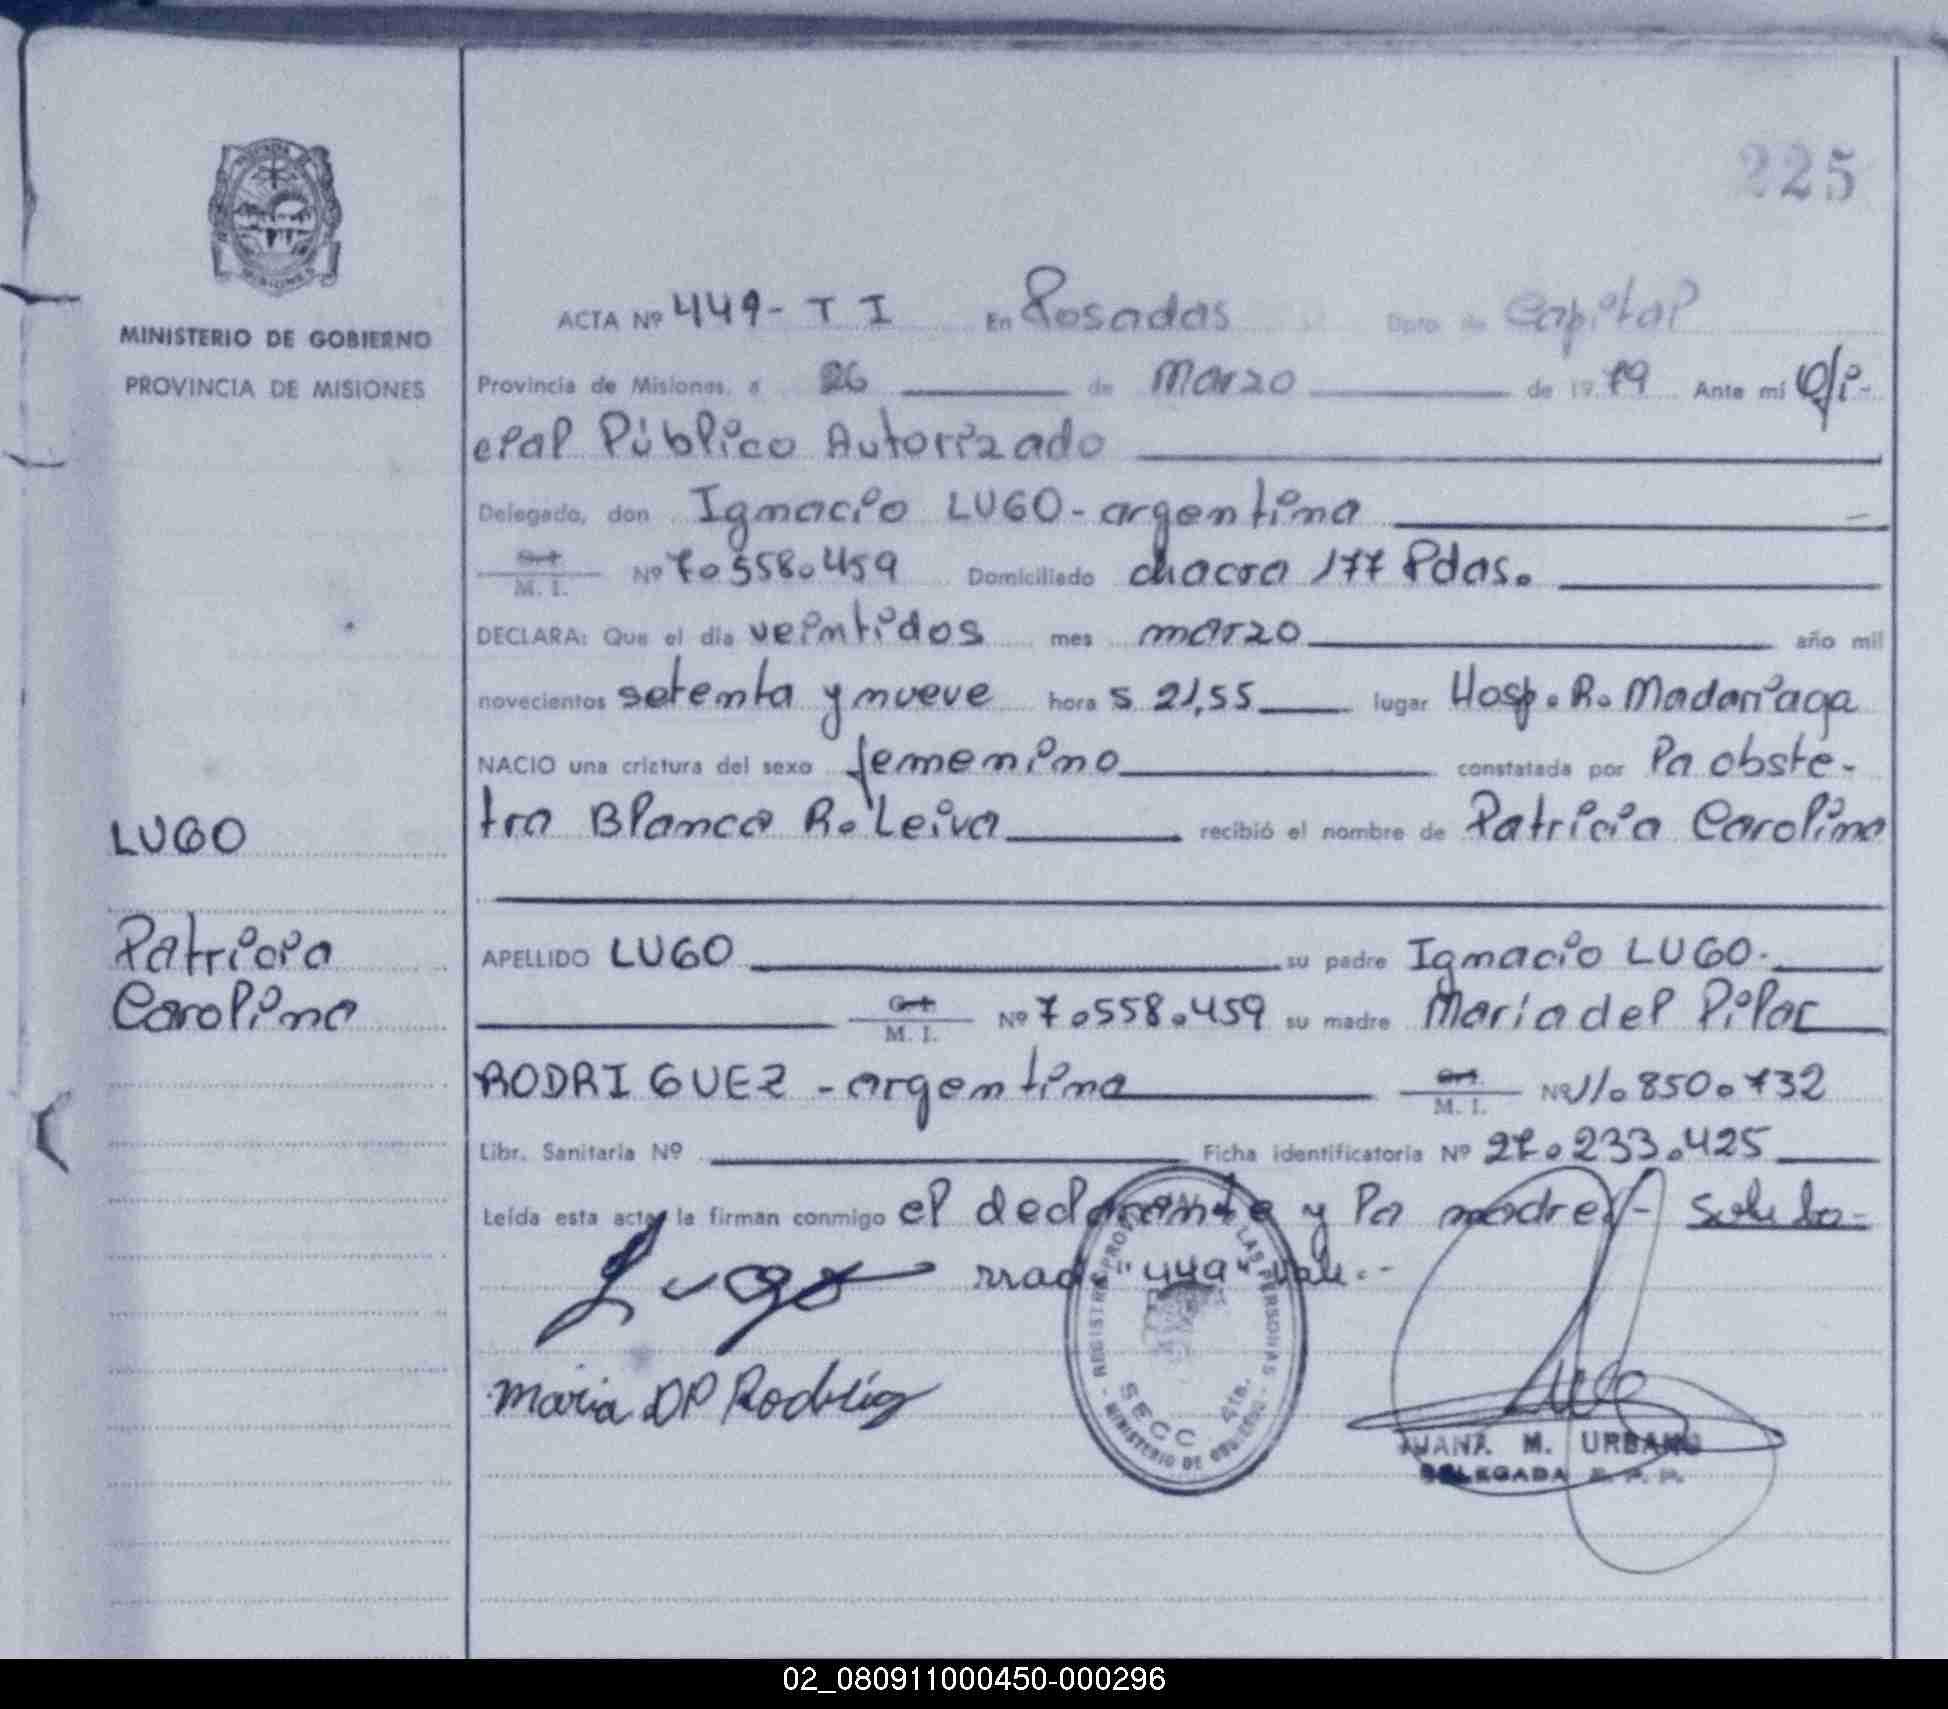 225
MINISTERIO DE GOBIERNO
PROVINCIA DE MISIONES
ACTA Nº 449- T I En Posadas Dpto. de Capital
Provincia de Misiones, a 26 de Marzo de 1979 Ante mí Ofi-
cial Público Autorizado
Delegado, don Ignacio LUGO - argentina
M. I. Nº 7.558.459 Domiciliado chacra 177 Pdas.
DECLARA: Que el día veintidos mes marzo año mil
novecientos setenta y nueve hora s 21,55 lugar Hosp. R. Madariaga
NACIO una criatura del sexo femenino constatada por la obste-
tra Blanca R. Leiva recibió el nombre de Patricia Carolina
LUGO
Patricia
Carolina
APELLIDO LUGO su padre Ignacio LUGO.
M. I. Nº 7.558.459 su madre María del Pilar
RODRIGUEZ - argentina M. I. Nº 11.850.732
Libr. Sanitaria Nº Ficha identificatoria Nº 27.233.425
Leída esta acta, la firman conmigo el declarante y la madre.- Sobre bo-
rrado "449" vale.-
Lugo
Maria DP Rodríg
REGISTRO PROVINCIAL DE LAS PERSONAS
SECC 4ta.
MINISTERIO DE GOBIERNO
JUANA M. URBANO
DELEGADA R. P. P.
02_080911000450-000296